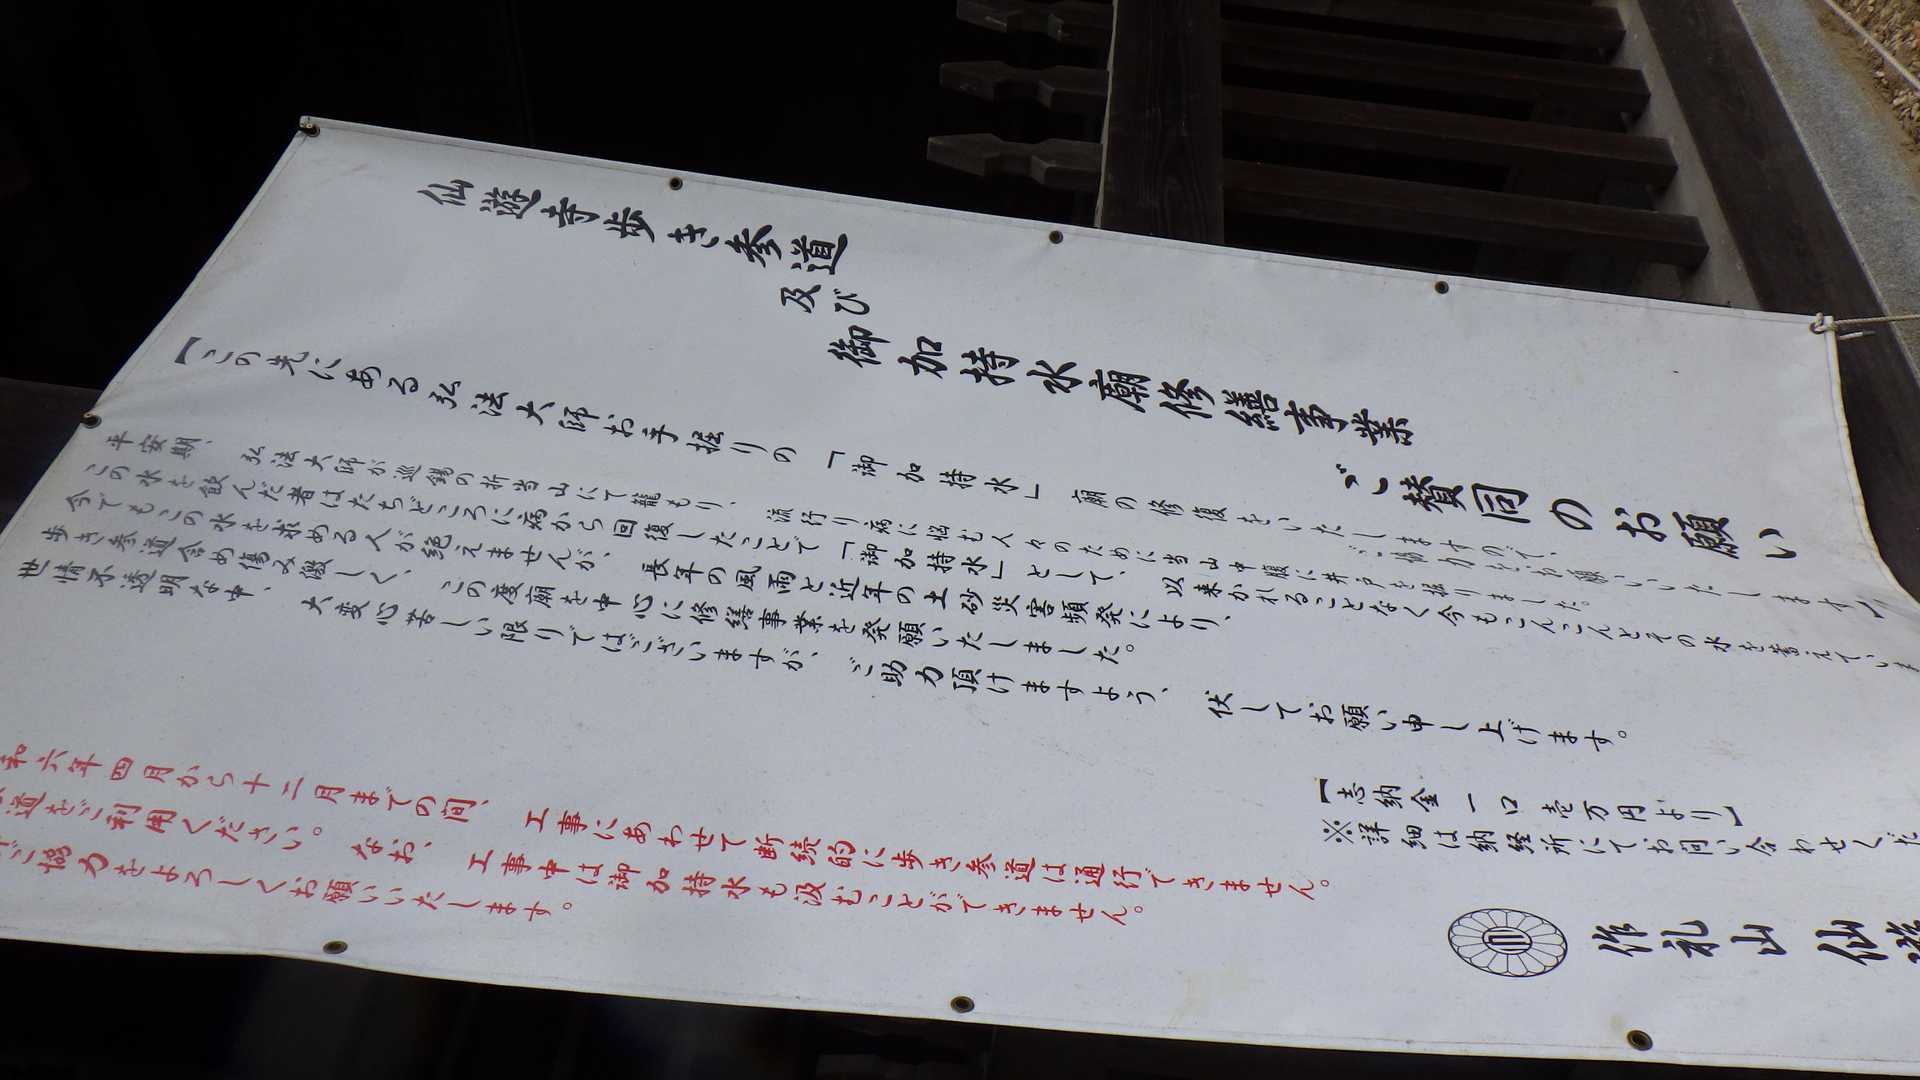 仙遊寺歩き参道
及び
御加持水廟修繕事業
ご賛同のお願い
【この先にある弘法大師お手掘りの「御加持水」廟の修復をいたしますので、ご協力をお願いいたします】
平安期、弘法大師が巡錫の折当山にて籠もり、流行り病に悩む人々のために当山中腹に井戸を掘りました。
この水を飲んだ者はたちどころに病から回復したことで「御加持水」として、以来かれることなく今もこんこんとその水を蓄えていま
今でもこの水を求める人が絶えませんが、長年の風雨と近年の土砂災害頻発により、
歩き参道含め傷み激しく、この度廟を中心に修繕事業を発願いたしました。
世情不透明な中、大変心苦しい限りではございますが、ご助力頂けますよう、伏してお願い申し上げます。
【志納金 一口 壱万円より】
※詳細は納経所にてお問い合わせくだ
和六年四月から十二月までの間、工事にあわせて断続的に歩き参道は通行できません。
道をご利用ください。なお、工事中は御加持水も汲むことができません。
ご協力をよろしくお願いいたします。
作礼山 仙遊